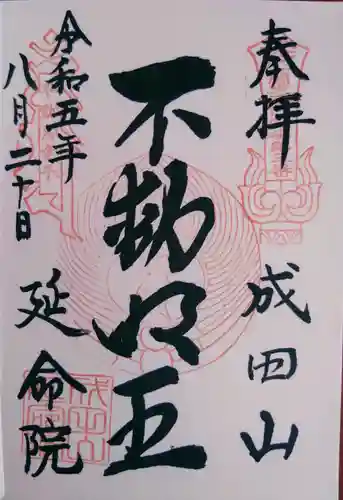 奉拝
成田山
不動明王
令和五年
八月二十日
延命院